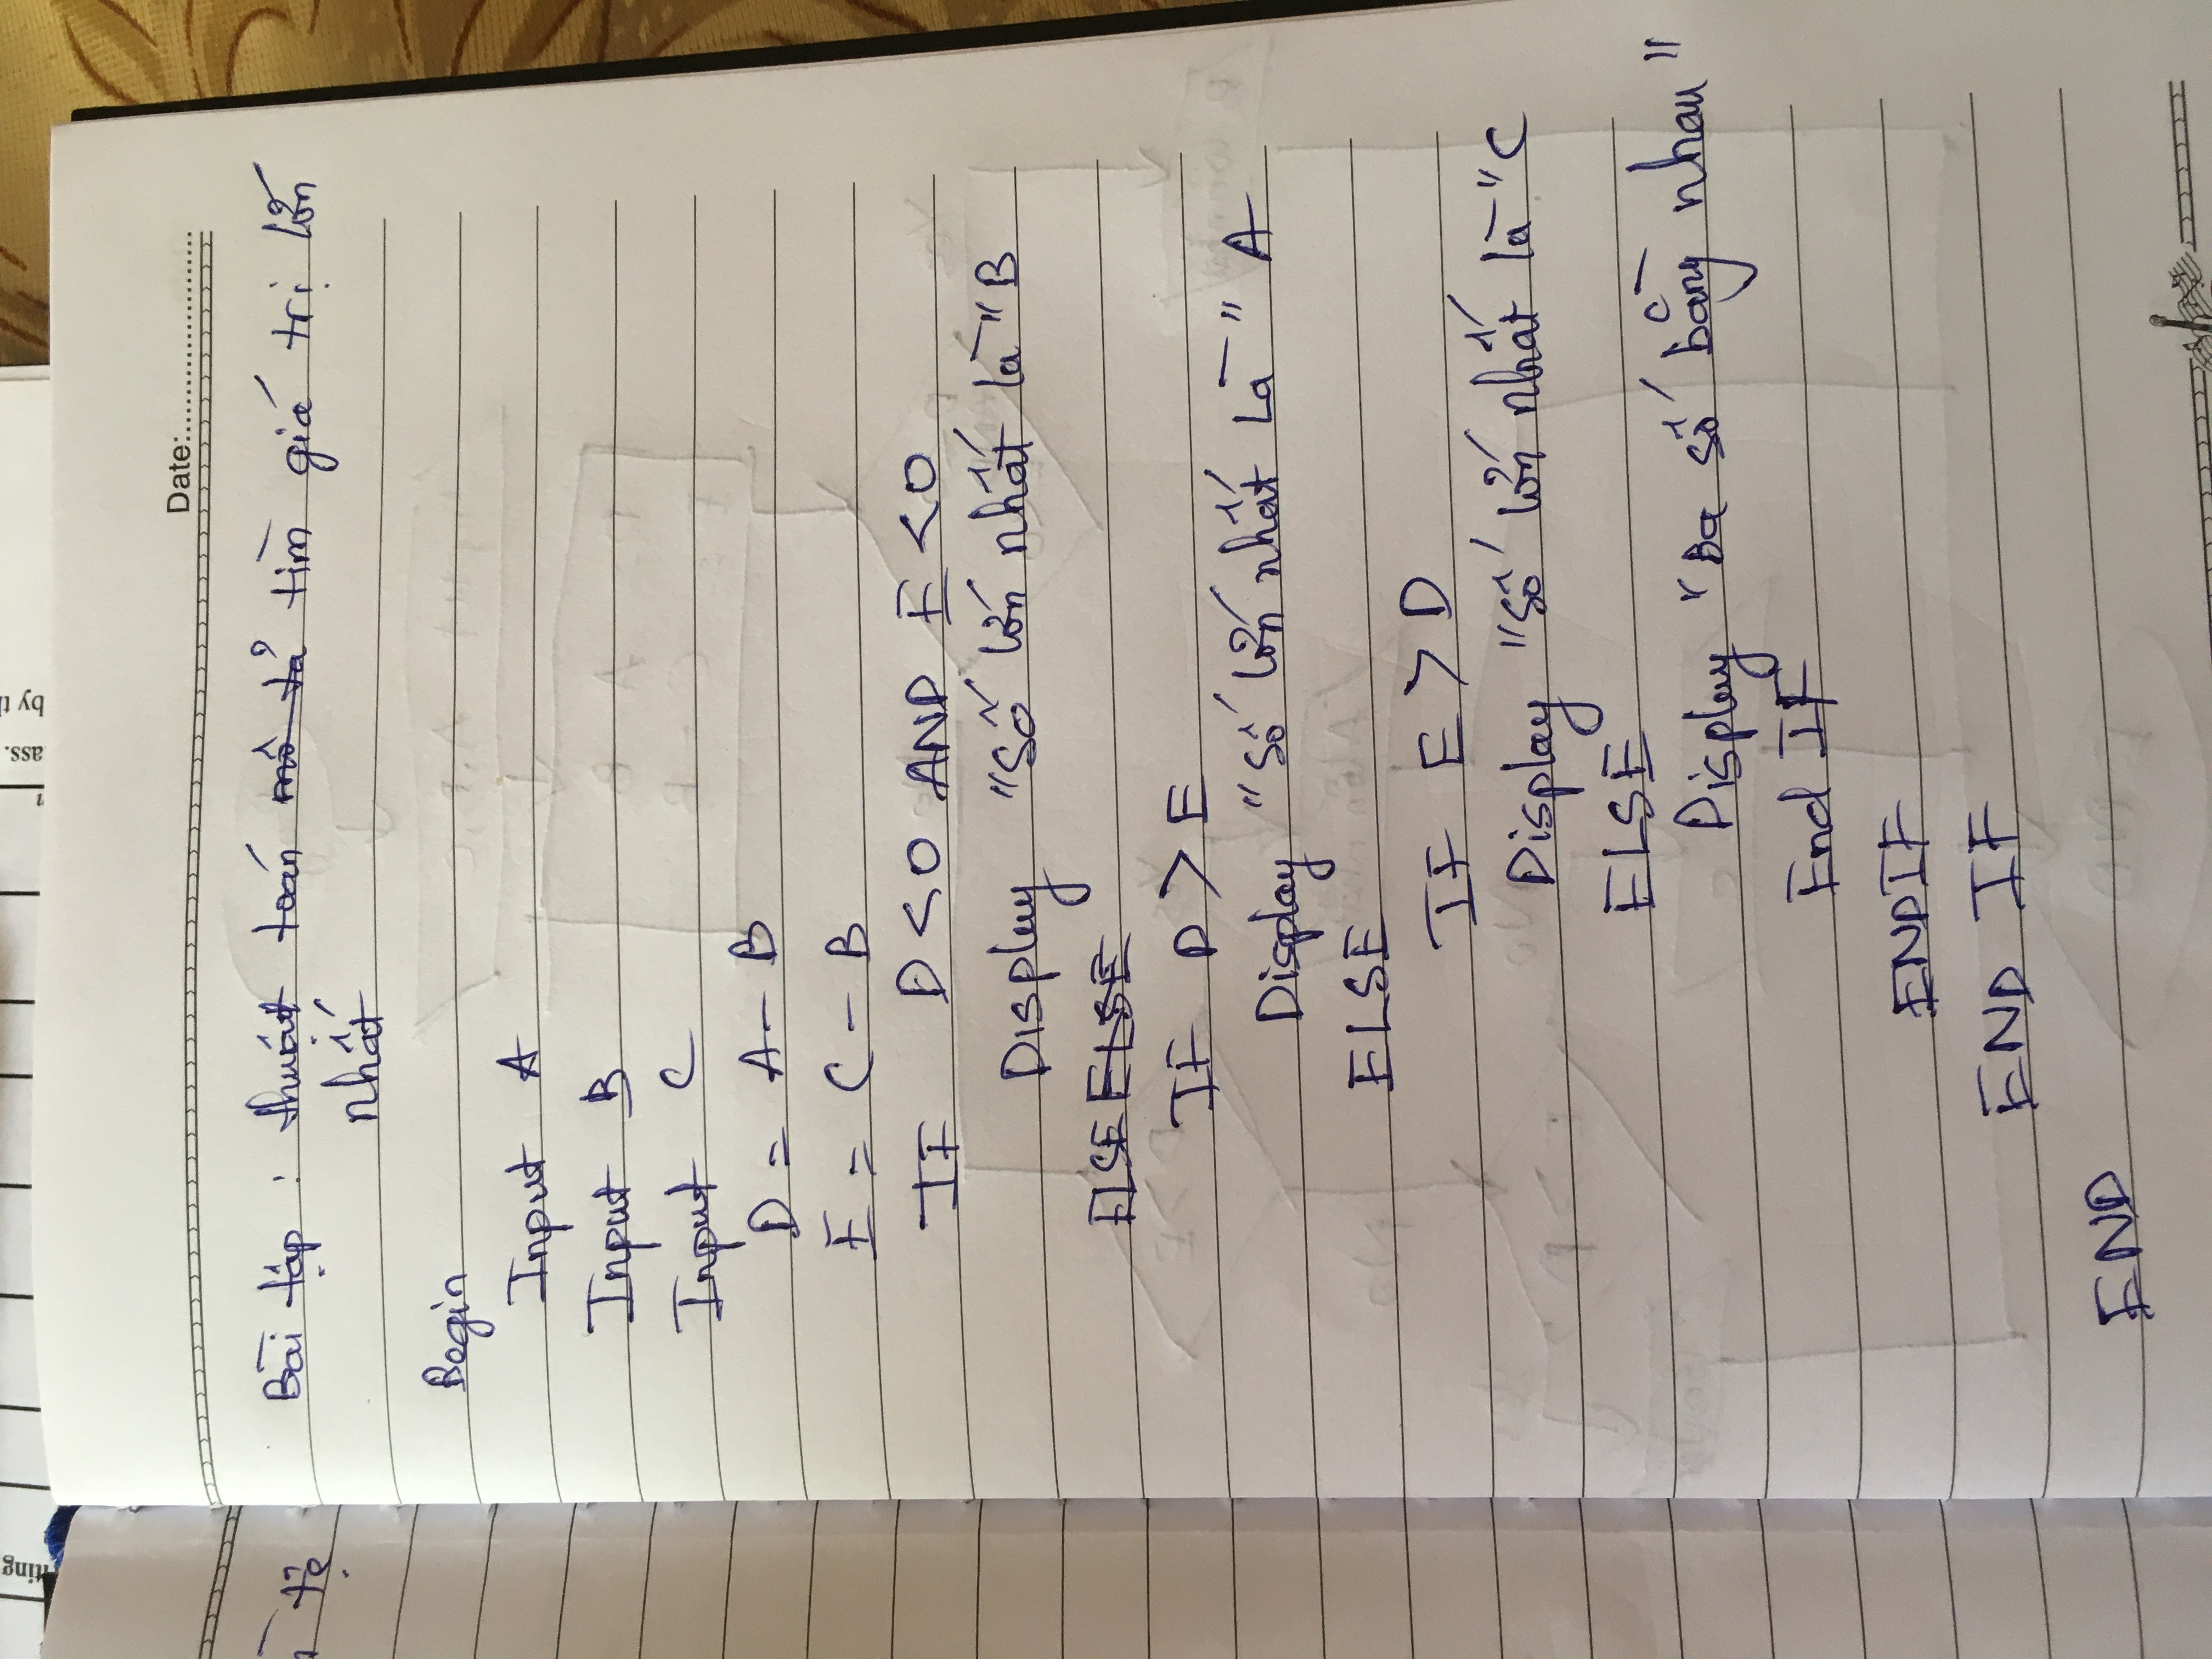 ting
ass.
by th
Date:
tệ
Bài tập : thuật toán mô tả tìm giá trị lớn
nhất
Begin
Input A
Input B
Input C
D = A - B
E = C - B
IF D < 0 AND E < 0
Display "Số lớn nhất là" B
ELSE ELSE
IF D > E
Display "Số lớn nhất Là" A
ELSE
IF E > D
Display "Số lớn nhất là" C
ELSE
Display "Ba số bằng nhau"
End IF
ENDIF
END IF
END